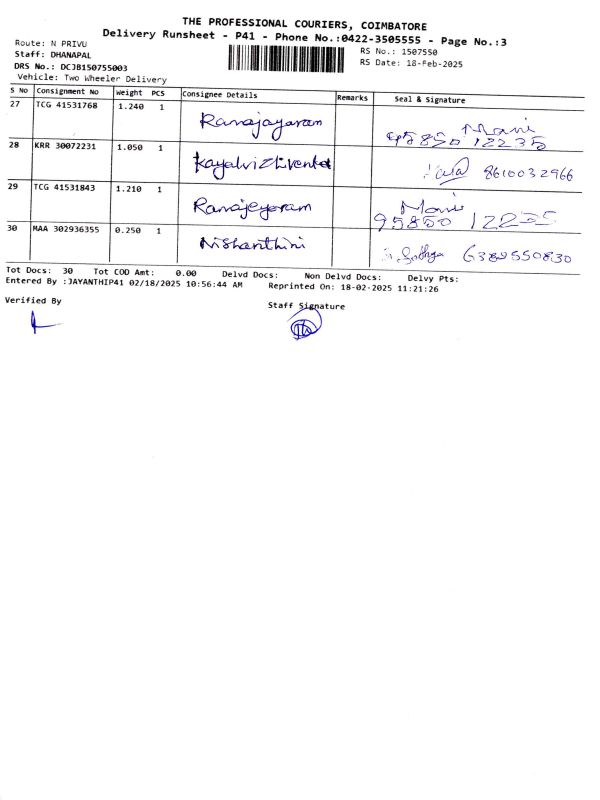 THE PROFESSIONAL COURIERS, COIMBATORE
Delivery Runsheet - P41 - Phone No.:0422-3505555 - Page No.:3
Route: N PRIVU
Staff: DHANAPAL
DRS No.: DCJB150755003
Vehicle: Two Wheeler Delivery
RS No.: 1507550
RS Date: 18-Feb-2025
S No Consignment No Weight PCS Consignee Details Remarks Seal & Signature
27 TCG 41531768 1.240 1 Ramajayaram Mani 12235
28 KRR 30072231 1.050 1 Kayalvizhivenkat 8610032966
29 TCG 41531843 1.210 1 Ramajeyaram Mani 95850 12235
30 MAA 302936355 0.250 1 Nishanthini 6389550830
Tot Docs: 30 Tot COD Amt: 0.00 Delvd Docs: Non Delvd Docs: Delvy Pts:
Entered By :JAYANTHIP41 02/18/2025 10:56:44 AM Reprinted On: 18-02-2025 11:21:26
Verified By
Staff Signature